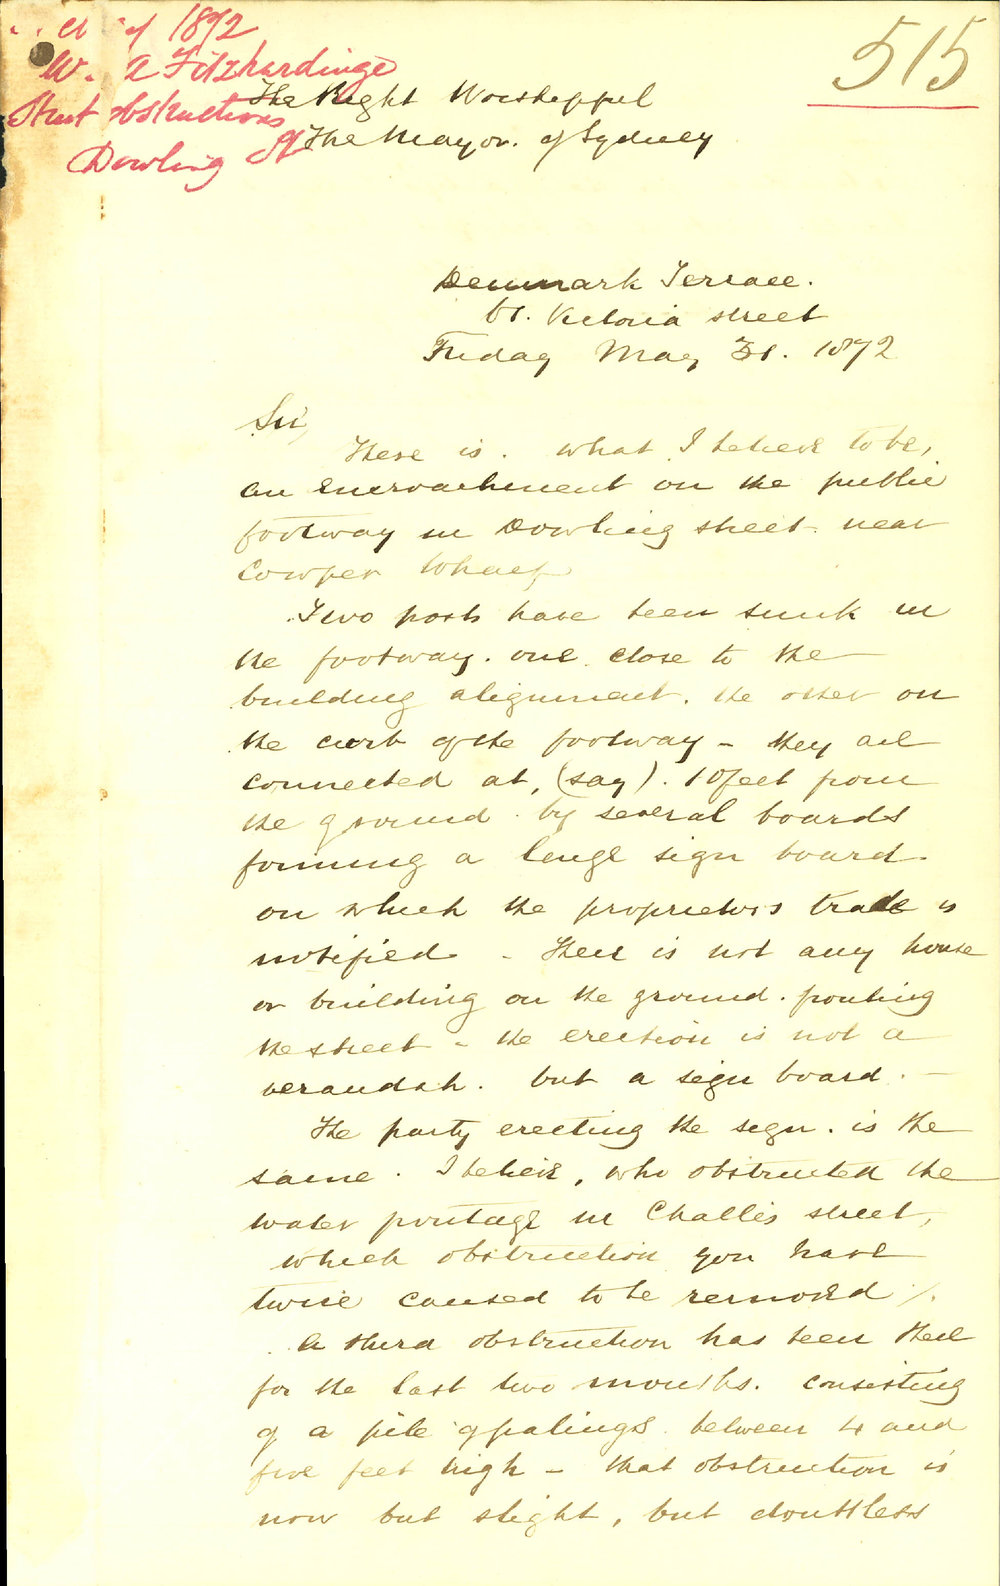 1872
W. A Fitzhardinge
Street obstructions
Dowling St
515
The Right Worshipful
The Mayor. of Sydney
Denmark Terrace.
Victoria street
Friday May 31. 1872
Sir,
There is. what I believe to be,
an encroachment on the public
footway in Dowling street. near
Cowper Wharf
Two posts have been sunk in
the footway. one close to the
building alignment. the other on
the curb of the footway - they are
connected at, (say). 10 feet from
the ground. by several boards
forming a large sign board.
on which the proprietors trade is
notified - There is not any house
or building on the ground. fronting
the street - the erection is not a
verandah. but a sign board. -
The party erecting the sign. is the
same. I believe, who obstructed the
water frontage in Challis street,
which obstruction you have
twice caused to be removed /.
A third obstruction has been there
for the last two months. consisting
of a pile of palings between 4 and
five feet high - that obstruction is
now but slight, but doubtless